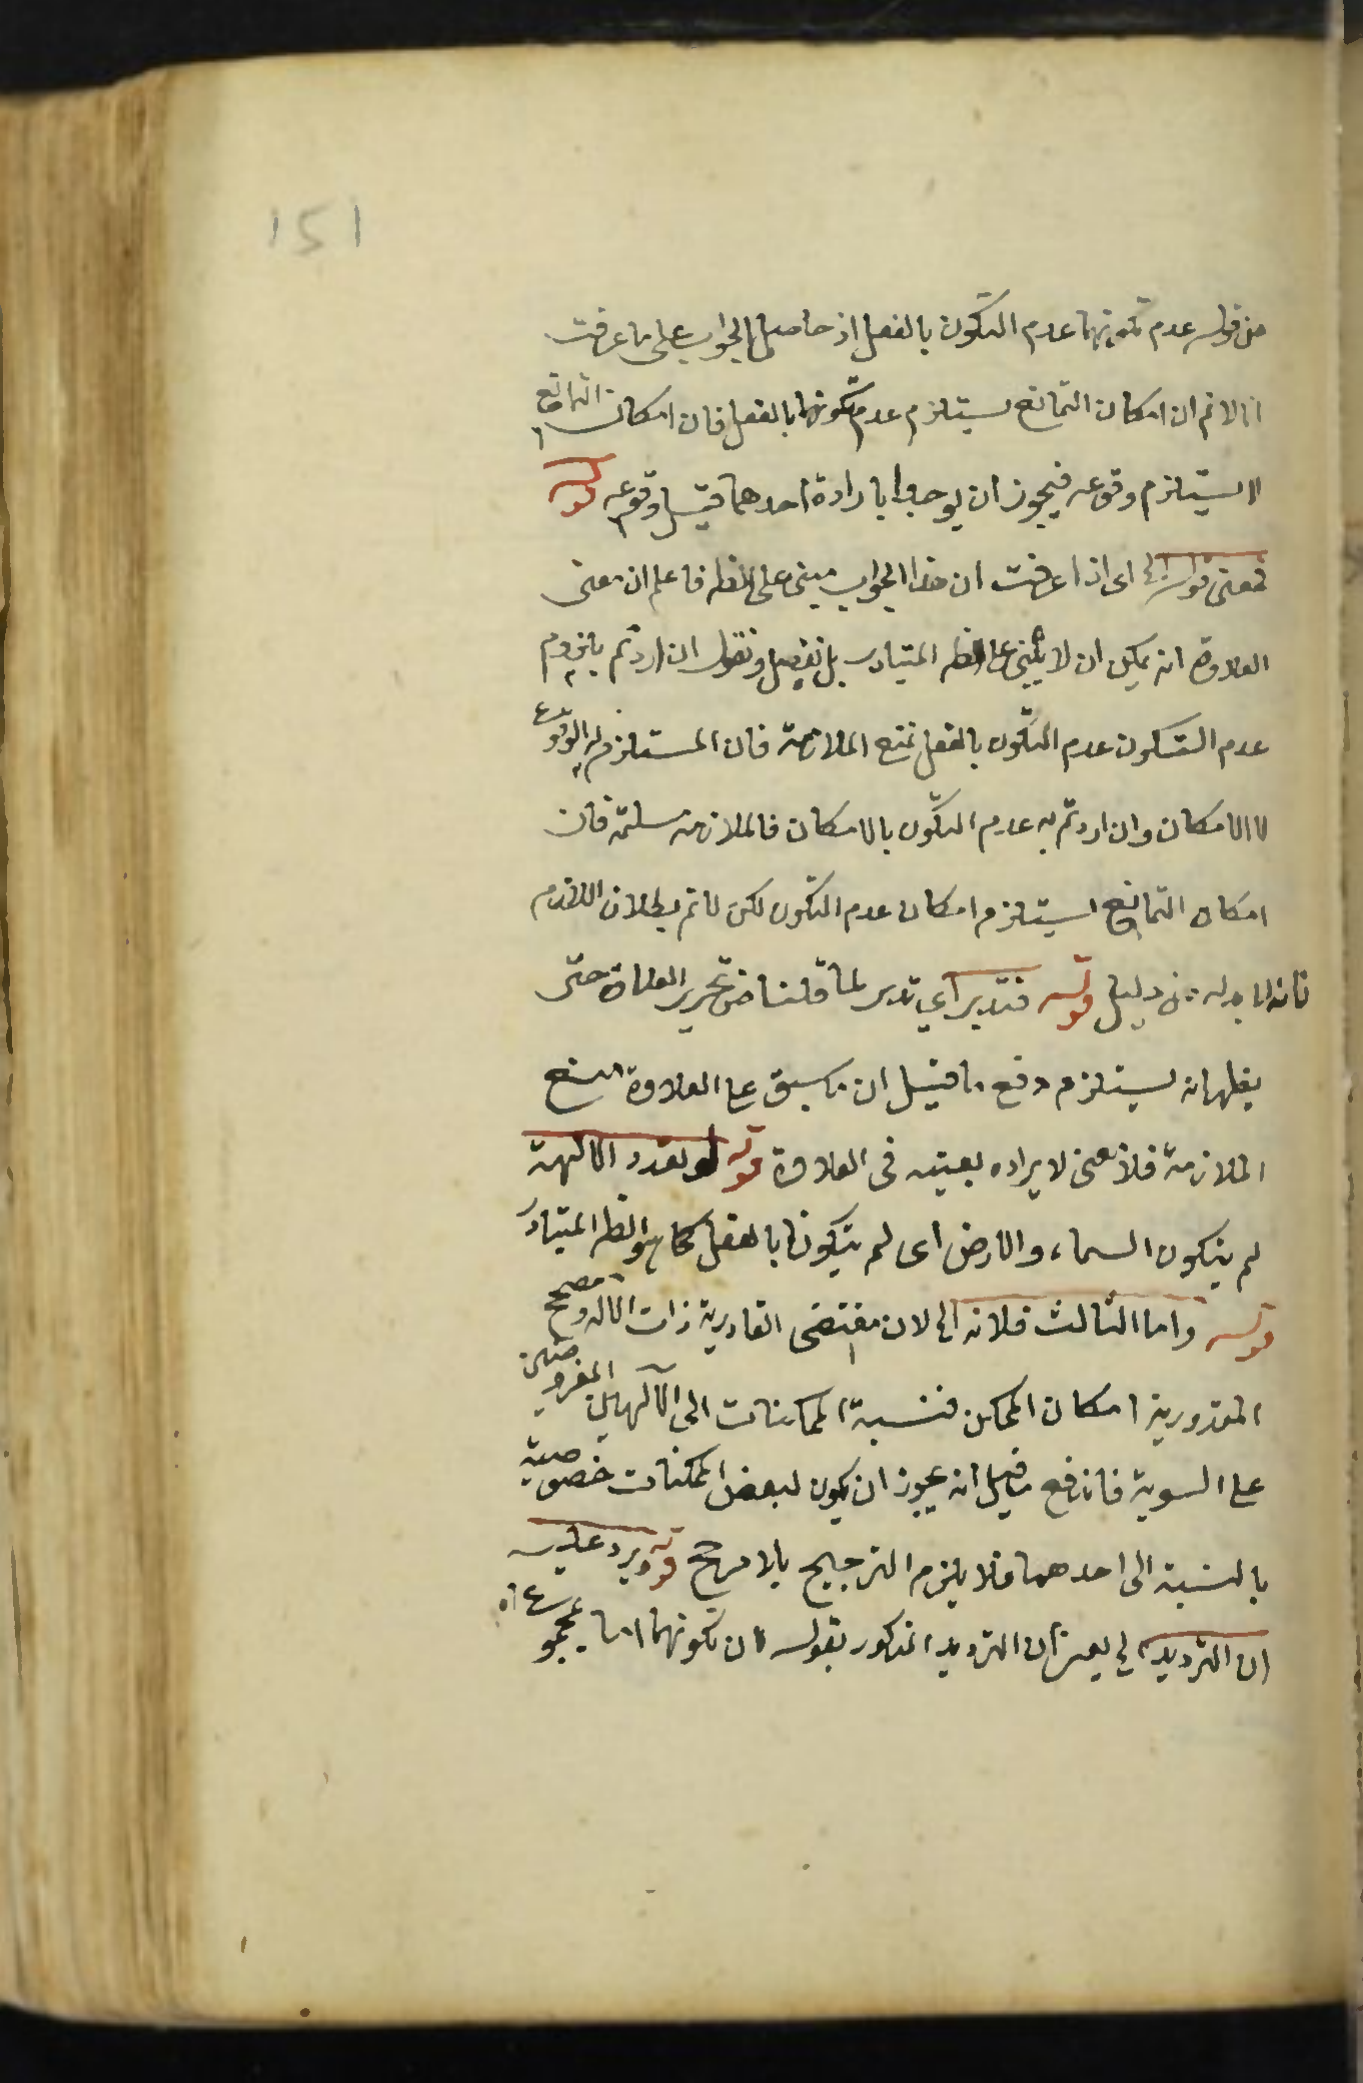 151
من قوله عدم تكونهما عدم التكون بالفعل اذ حاصل الجواب على ما عرفت
انا لانم ان امكان التمانع يستلزم عدم تكونهما بالفعل فان امكان التمانع
لا يستلزم وقوعه فيجوز ان يوجدا بارادة احدهما قبل وقوعه قوله
فمعنى قوله الخ اى اذا عرفت ان هذا الجواب مبنى على الظ فاعلم ان معنى
العلاوة انه يمكن ان لا يبنى على الظ المتبادر بل نفصل ونقول ان اردتم بلزوم
عدم التكون عدم التكون بالفعل نمنع الملازمة فان المستلزم له الوقوع
لا الامكان وان اردتم به عدم التكون بالامكان فالملازمة مسلمة فان
امكان التمانع يستلزم امكان عدم التكون لكن لانم بطلان اللازم
فانه لا بد له من دليل قوله فتدبر اى تدبر لما قلنا من تحرير العلاوة حتى
يظهر انه يستلزم دفع ما قيل ان ما سبق على العلاوة منع
الملازمة فلا معنى لايراده بعينه فى العلاوة قوله لو تعدد الالهة
لم يتكون السماء والارض اى لم يتكونا بالفعل كما هو الظ المتبادر
قوله واما الثالث فلانه الخ لان مقتضى القادرية ذات الاله ومصحح
المقدورية امكان الممكن فنسبة الممكنات الى الآلهين المفروضين
على السوية فاندفع ما قيل انه يجوز ان يكون لبعض الممكنات خصوصية
بالنسبة الى احدهما فلا يلزم الترجيح بلا مرجح قوله ويرد عليه
ان الترديد الخ يعنى ان الترديد المذكور بقوله لان تكونهما اما بمجموع